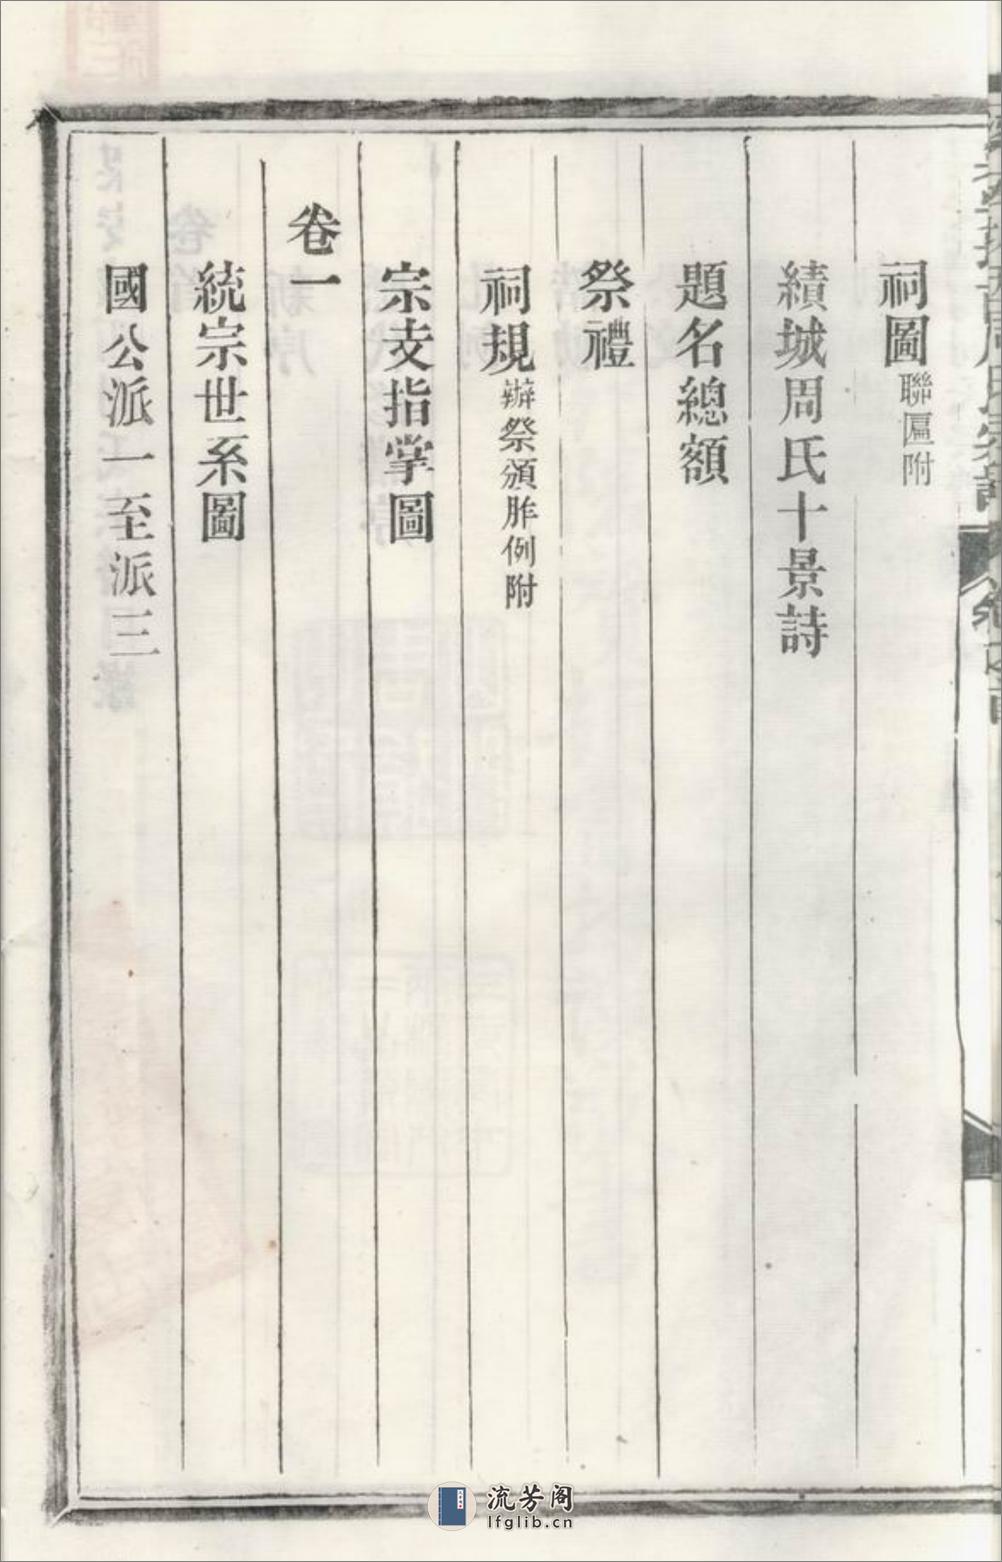 祠圖聯匾附
績城周氏十景詩
題名總額
祭禮
祠規辦祭頒胙例附
宗支指掌圖
卷一
統宗世系圖
國公派一至派三
流芳阁
lfglib.cn